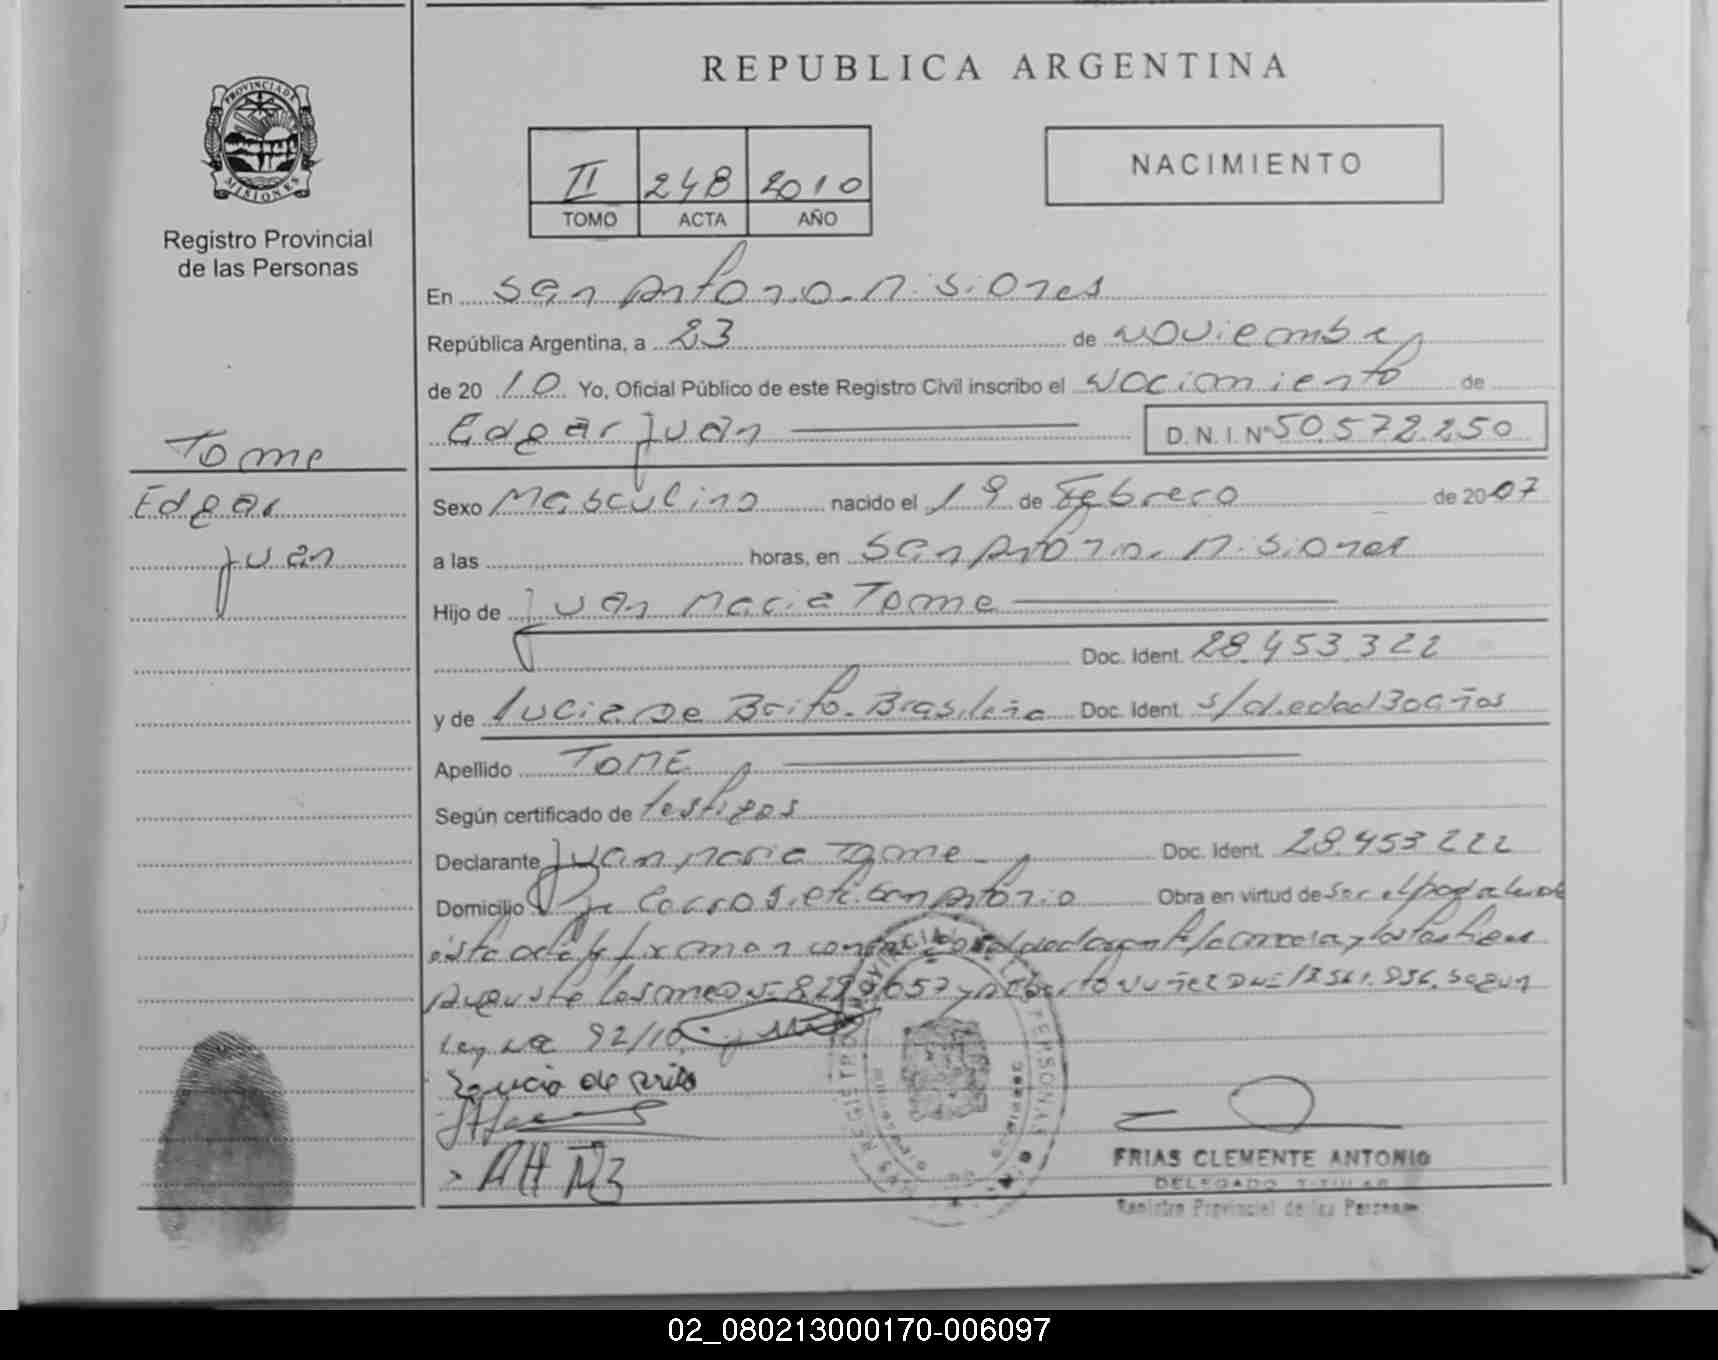 REPUBLICA ARGENTINA
PROVINCIA DE MISIONES
Registro Provincial
de las Personas
II 248 2010
TOMO ACTA AÑO
NACIMIENTO
En San Antonio. Misiones
República Argentina, a 23 de Noviembre
de 2010 Yo, Oficial Público de este Registro Civil inscribo el Nacimiento de
Edgar Juan D. N. I. Nº 50.572.250
Tome
Edgar
Juan
Sexo Masculino nacido el 19 de Febrero de 2007
a las horas, en San Antonio. Misiones
Hijo de Juan Maria Tome
Doc. Ident. 28.453.322
y de Lucia De Brito. Brasileña Doc. Ident. s/d. edad 30 años
Apellido TOME
Según certificado de testigos
Declarante Juan Maria Tome Doc. Ident. 28.453.222
Domicilio Cocrosiete San Antonio Obra en virtud de Ser el
esta acta firman con el
y Alberto Nuñez DNI Segun
Ley 92/10
de Brito
AH Ñz
FRIAS CLEMENTE ANTONIO
DELEGADO TITULAR
Registro Provincial de las Personas
02_080213000170-006097